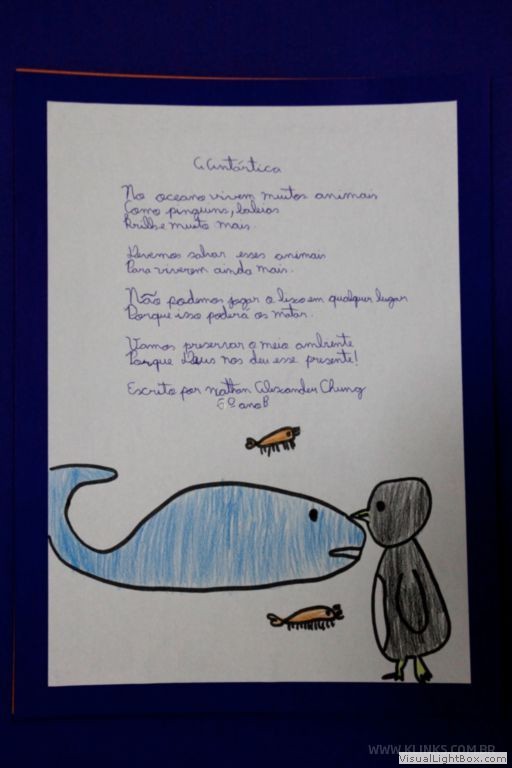 A Antártica
No oceano vivem muitos animais
Como pinguins, baleias
Krills e muito mais.
Devemos salvar esses animais
Para viverem ainda mais.
Não podemos jogar o lixo em qualquer lugar
Porque isso poderá os matar.
Vamos preservar o meio ambiente
Porque Deus nos deu esse presente!
Escrito por Nathan Alexander Chung
5º ano B
WWW.KLINKS.COM.BR
VisualLightBox.com